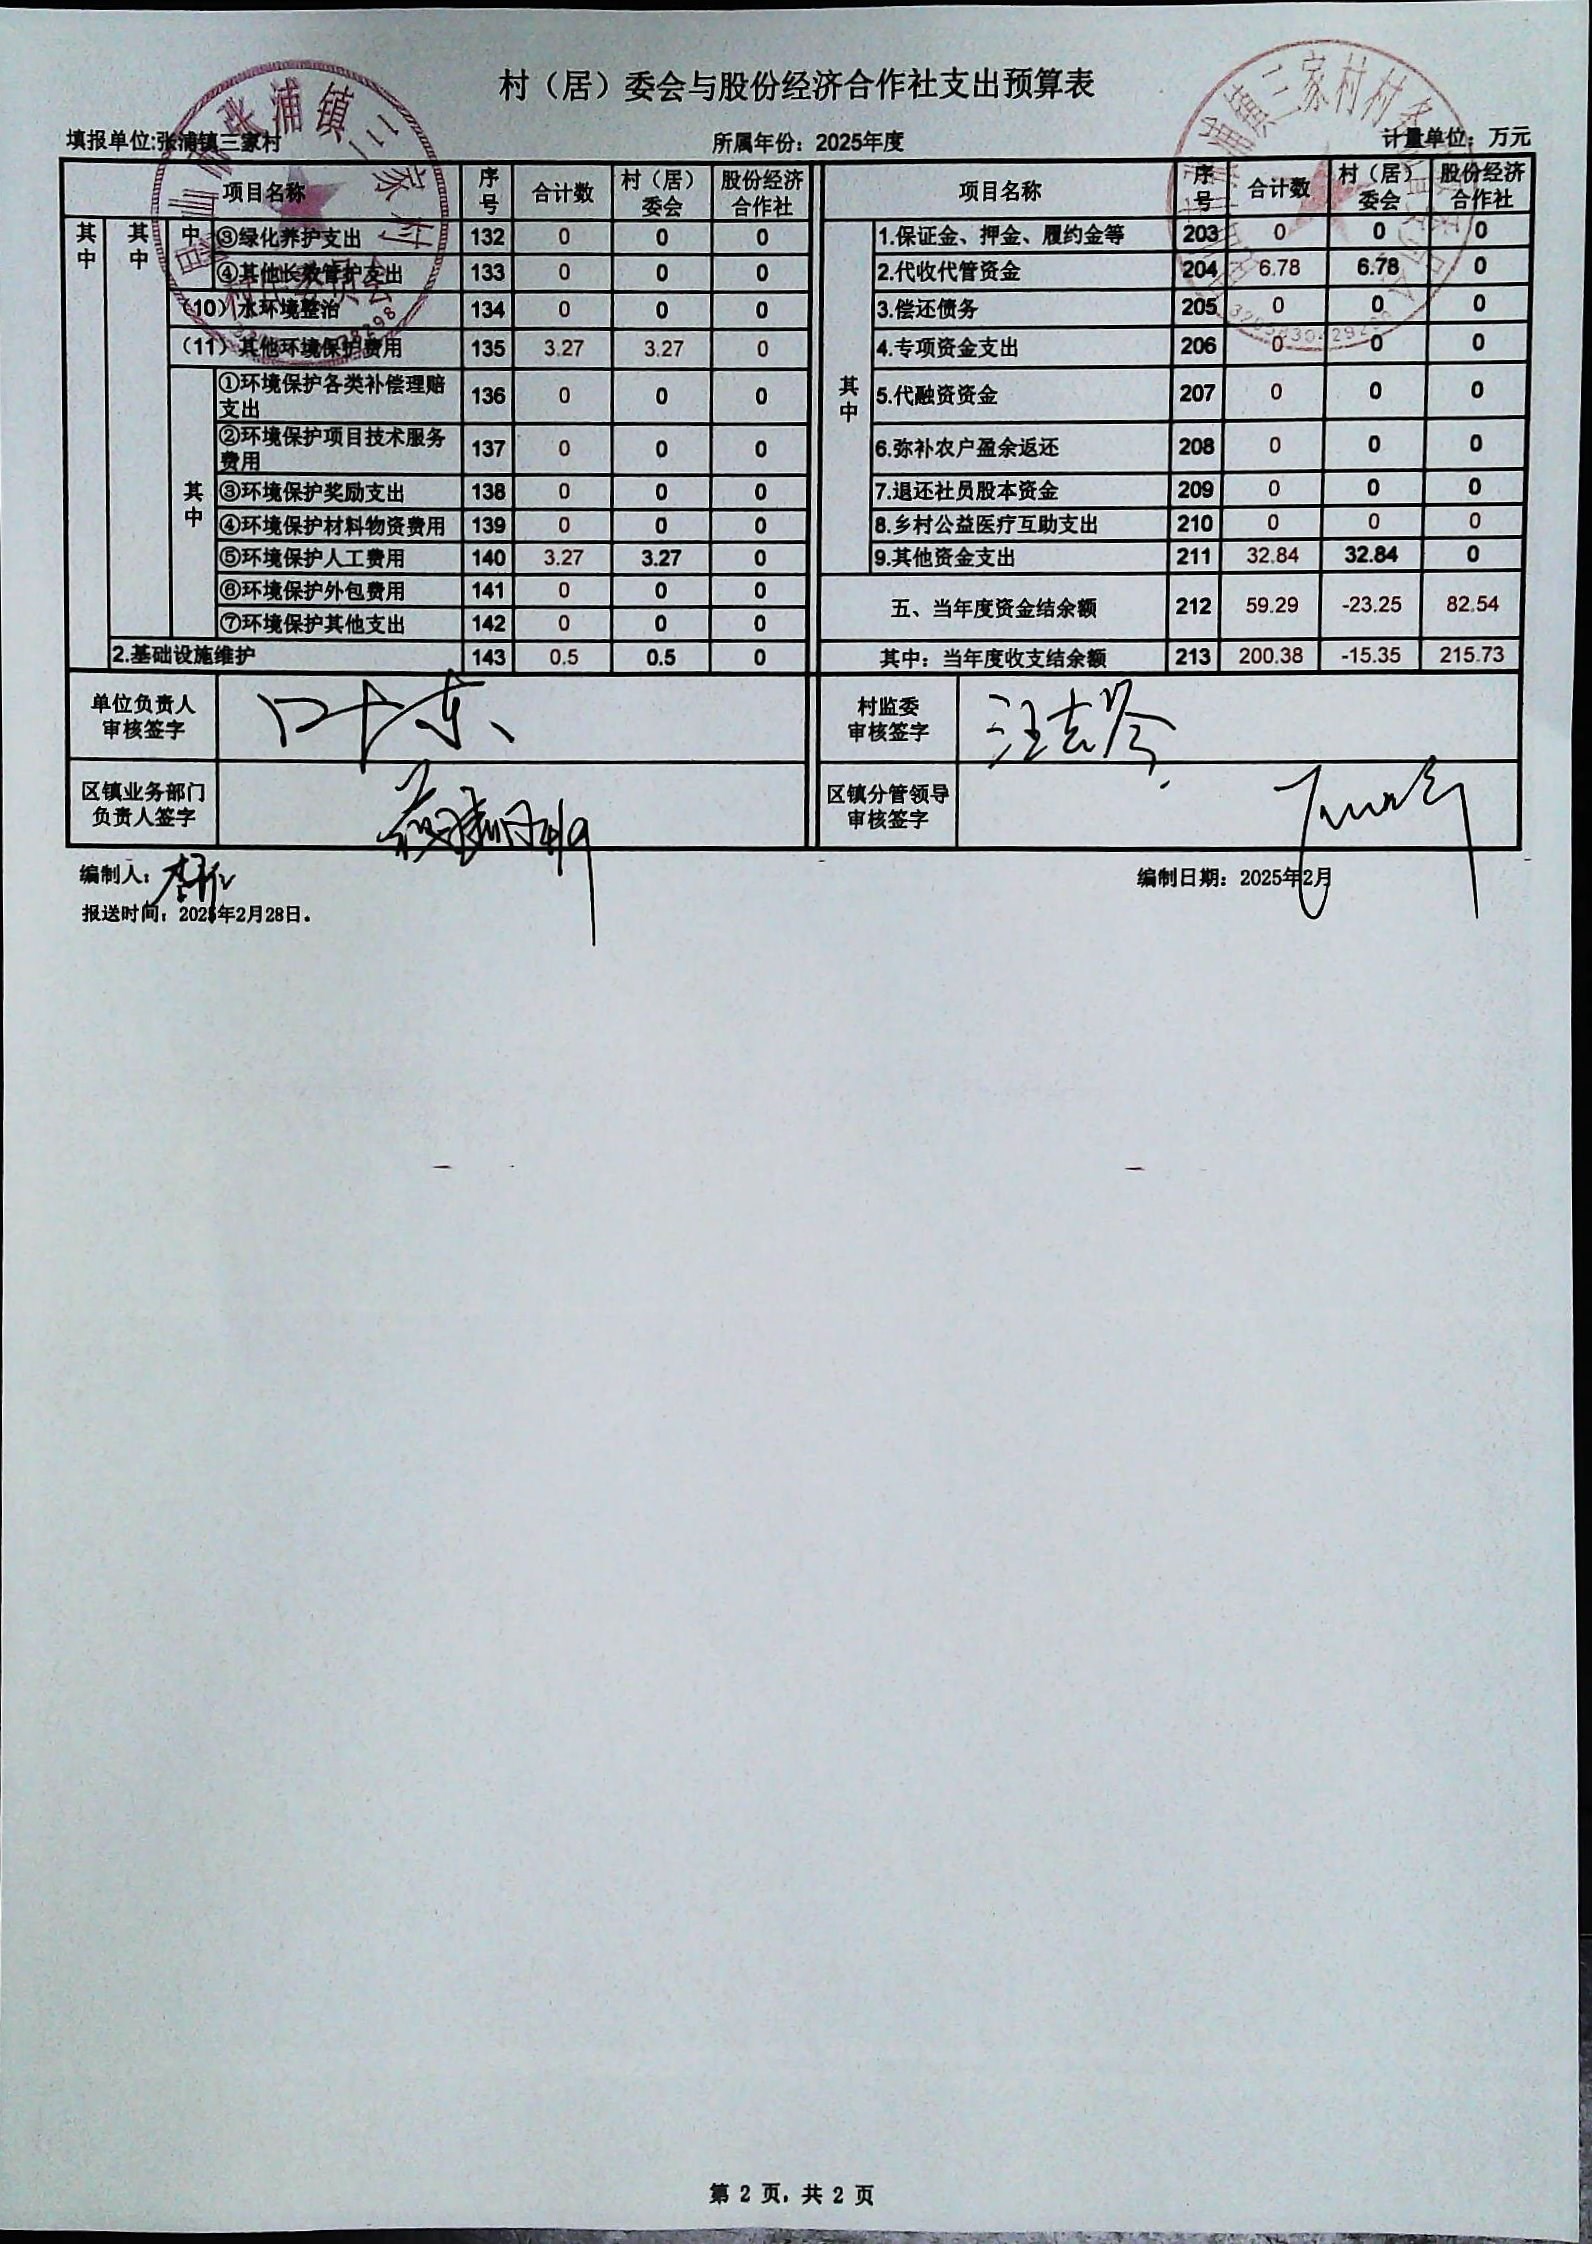 村（居）委会与股份经济合作社支出预算表
填报单位:张浦镇三家村 所属年份：2025年度 计量单位：万元
项目名称 序号 合计数 村（居）委会 股份经济合作社 项目名称 序号 合计数 村（居）委会 股份经济合作社
其中 其中 中 ③绿化养护支出 132 0 0 0 其中 1.保证金、押金、履约金等 203 0 0 0
④其他长效管护支出 133 0 0 0 2.代收代管资金 204 6.78 6.78 0
（10）水环境整治 134 0 0 0 3.偿还债务 205 0 0 0
（11）其他环境保护费用 135 3.27 3.27 0 4.专项资金支出 206 0 0 0
其中 ①环境保护各类补偿理赔支出 136 0 0 0 5.代融资资金 207 0 0 0
②环境保护项目技术服务费用 137 0 0 0 6.弥补农户盈余返还 208 0 0 0
③环境保护奖励支出 138 0 0 0 7.退还社员股本资金 209 0 0 0
④环境保护材料物资费用 139 0 0 0 8.乡村公益医疗互助支出 210 0 0 0
⑤环境保护人工费用 140 3.27 3.27 0 9.其他资金支出 211 32.84 32.84 0
⑥环境保护外包费用 141 0 0 0 五、当年度资金结余额 212 59.29 -23.25 82.54
⑦环境保护其他支出 142 0 0 0
2.基础设施维护 143 0.5 0.5 0 其中：当年度收支结余额 213 200.38 -15.35 215.73
单位负责人审核签字 叶东 村监委审核签字
区镇业务部门负责人签字 区镇分管领导审核签字
编制人： 编制日期：2025年2月
报送时间：2025年2月28日。
第 2 页，共 2 页